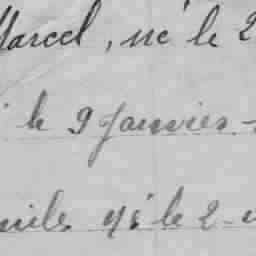 Marcel, né le 2
le 9 Janvier -
mile né le 2